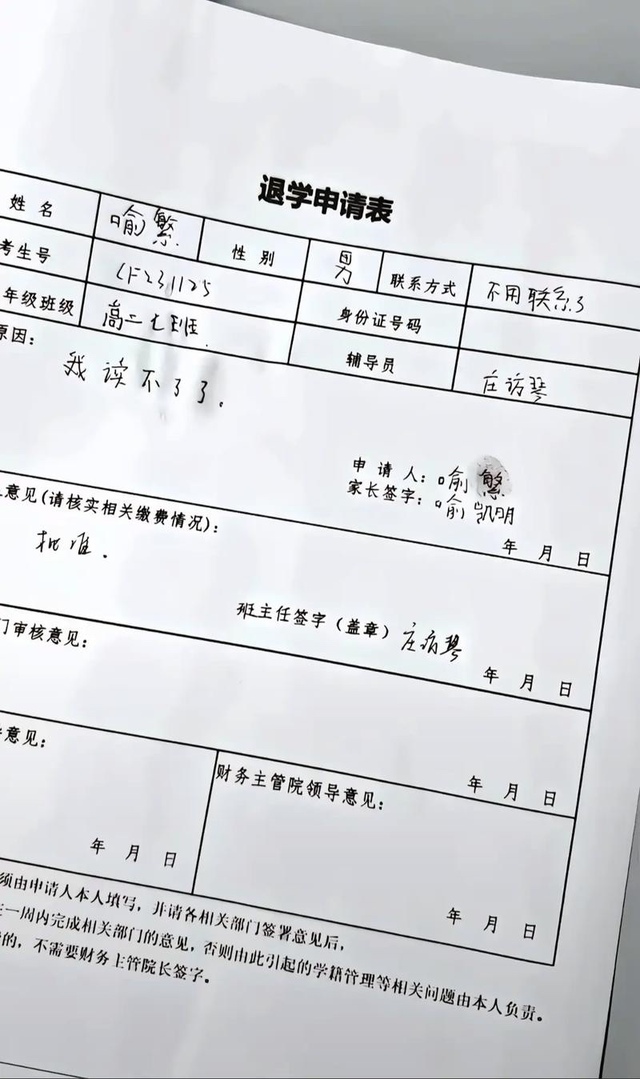 退学申请表
姓名 喻繁 性别 男 联系方式 不用联系了
考生号 CF231125 身份证号码
年级班级 高二七班. 辅导员 庄访琴
原因:
我读不了了.
申请人: 喻繁
家长签字: 喻凯明
年 月 日
意见(请核实相关缴费情况):
批准.
班主任签字(盖章) 庄访琴
年 月 日
门审核意见:
年 月 日
意见:
财务主管院领导意见:
年 月 日
年 月 日
须由申请人本人填写,并请各相关部门签署意见后,
一周内完成相关部门的意见,否则由此引起的学籍管理等相关问题由本人负责。
的,不需要财务主管院长签字。